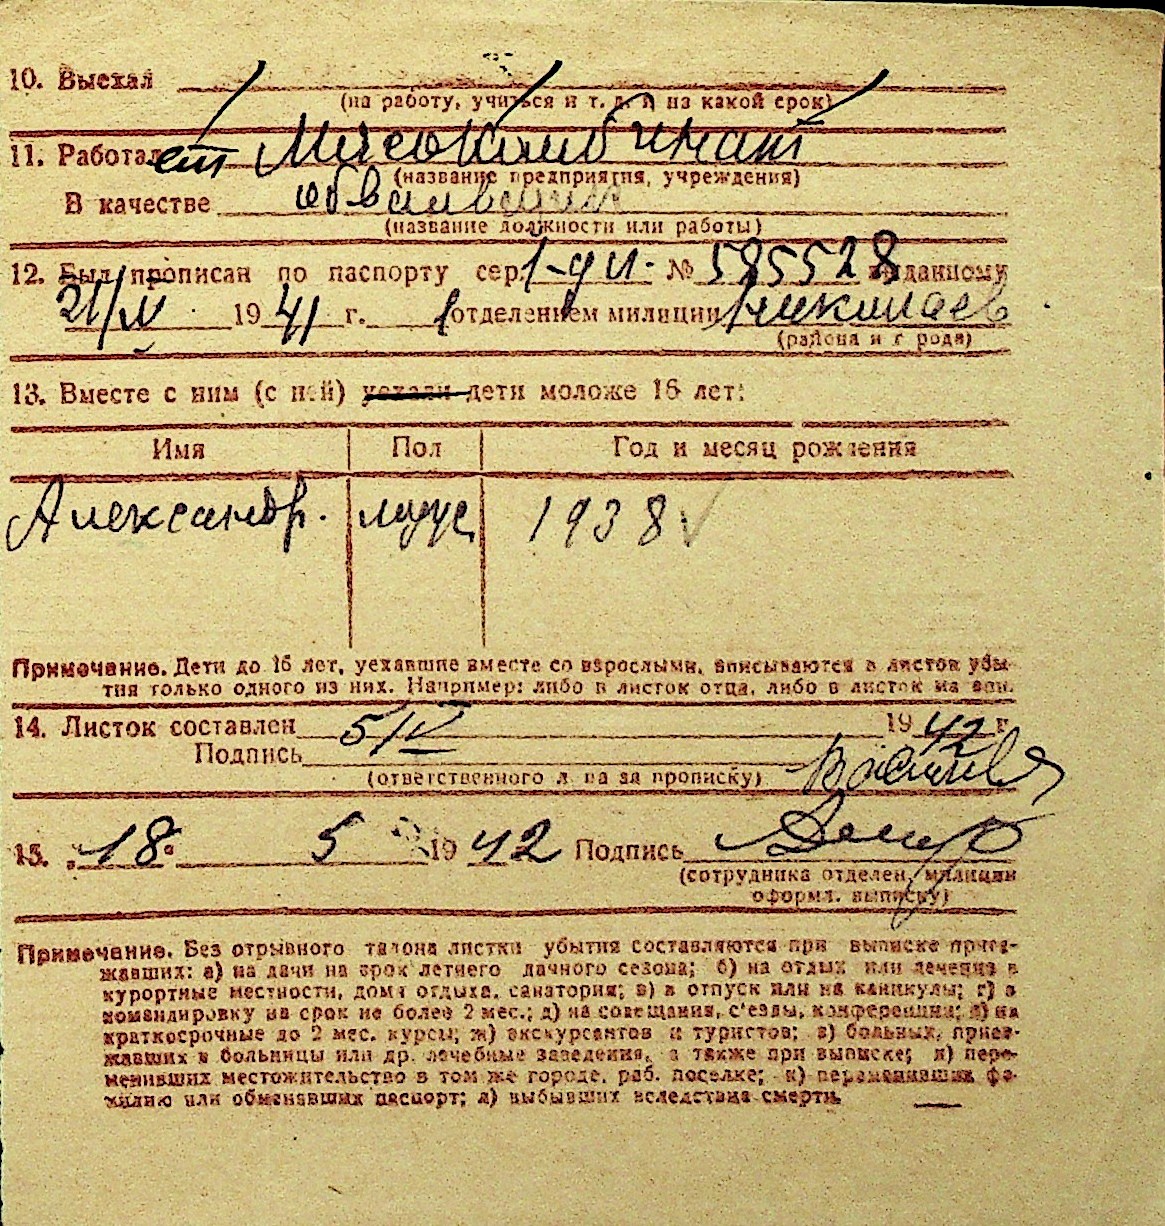 10. Выехал
(на работу, учиться и т. д. и на какой срок)
11. Работает Мясокомбинат
(название предприятия, учреждения)
В качестве обвальщик
(название должности или работы)
12. Был прописан по паспорту сер. № 595528 выданному
21/IV 1941 г. 1 отделением милиции Николаев
(района и города)
13. Вместе с ним (с ней) уехали дети моложе 16 лет:
Имя Пол Год и месяц рождения
Александр. муж 1938
Примечание. Дети до 16 лет, уехавшие вместе со взрослыми, вписываются в листок убы-
тия только одного из них. Например: либо в листок отца, либо в листок матери.
14. Листок составлен 5/V 1942 г.
Подпись
(ответственного лица за прописку)
15. „18“ 5 1942 Подпись
(сотрудника отделен. милиции
оформл. выписку)
Примечание. Без отрывного талона листки убытия составляются при выписке приез-
жавших: а) на дачи на срок летнего дачного сезона; б) на отдых или лечение в
курортные местности, дома отдыха, санатории; в) в отпуск или на каникулы; г) в
командировку на срок не более 2 мес.; д) на совещания, с'езды, конференции; е) на
краткосрочные до 2 мес. курсы; ж) экскурсантов и туристов; з) больных, приез-
жавших в больницы или др. лечебные заведения, а также при выписке; и) пере-
менивших местожительство в том же городе, раб. поселке; к) переменивших фа-
милию или обменявших паспорт; л) выбывших вследствие смерти.